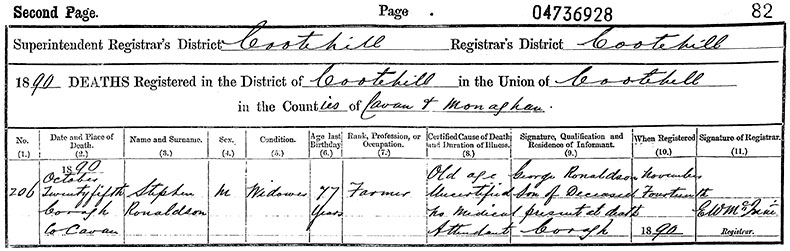 Second Page. Page 04736928 82
Superintendent Registrar's District Cootehill Registrar's District Cootehill
1890 DEATHS Registered in the District of Cootehill in the Union of Cootehill
in the Counties of Cavan & Monaghan.
No. Date and Place of Death. Name and Surname. Sex. Condition. Age last Birthday. Rank, Profession, or Occupation. Certified Cause of Death and Duration of Illness. Signature, Qualification and Residence of Informant. When Registered Signature of Registrar.
(1.) (2.) (3.) (4.) (5.) (6.) (7.) (8.) (9.) (10.) (11.)
1890
October Old age George Ronaldson November
206 Twenty fifth Stephen M Widower 77 Farmer Uncertified Son of Deceased Fourteenth
Coragh Ronaldson Years no Medical present at death
Co Cavan Attendant Coragh 1890 Registrar.